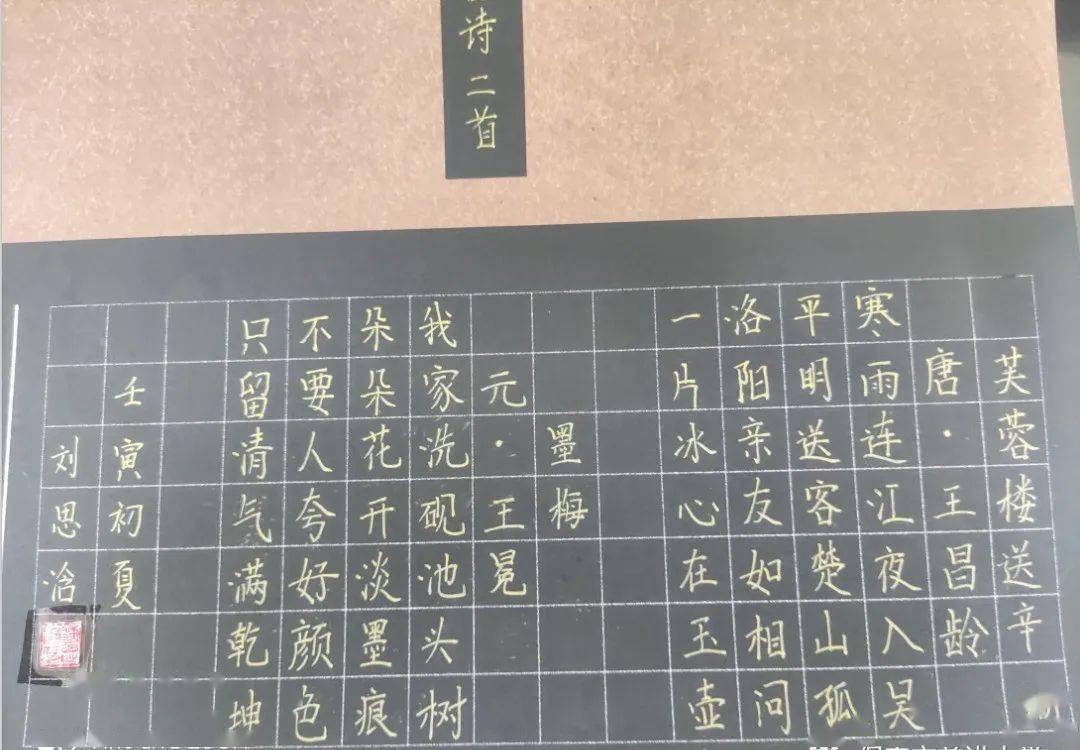 诗二首
芙蓉楼送辛
唐·王昌龄
寒雨连江夜入吴
平明送客楚山孤
洛阳亲友如相问
一片冰心在玉壶
墨梅
元·王冕
我家洗砚池头树
朵朵花开淡墨痕
不要人夸好颜色
只留清气满乾坤
壬寅初夏
刘思浛